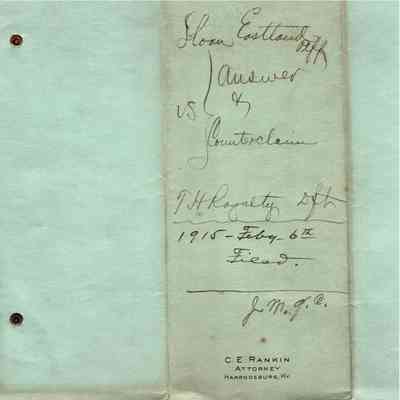 Sloan Eastland Plff
Answer
vs &
Counterclaim
T H Royalty Dft
1915 - Feby 6th
Filed.
J. M. J. C.
C. E. RANKIN
ATTORNEY
HARRODSBURG, KY.